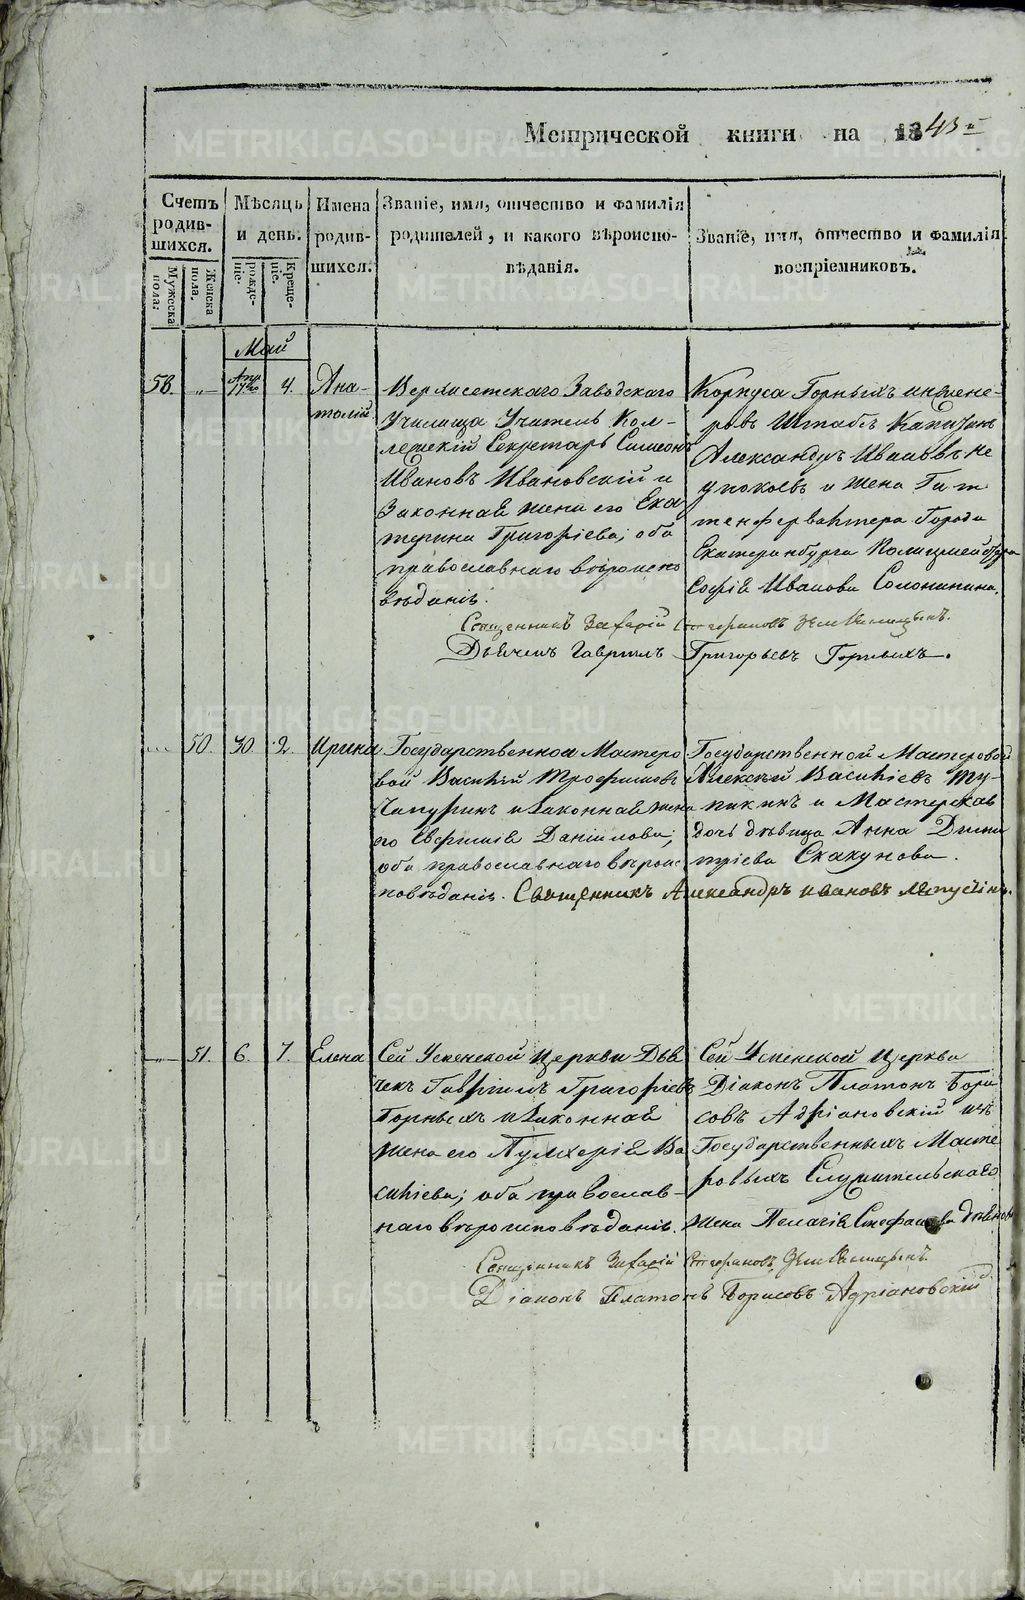 Метрической книги на 1843й
Счетъ родив-шихся.
Мужеска пола:
Женска пола.
Мѣсяцъ и день.
рожде-ніе.
Креще-ніе.
Имена родив-шихся.
Званіе, имя, отчество и фамилія
родителей, и какого вѣроиспо-
вѣданія.
Званіе, имя, отчество и фамилія
воспріемниковъ.
Май
58. „ 4. Ана-
толій
Верхисетскаго Заводскаго
Училища Учитель Кол-
лежскій Секретарь Симеонъ
Ивановъ Ивановскій и
Законная жена его Ека
терина Григоріева; оба
православнаго вѣроиспо
вѣданія.
Корпуса Горныхъ инжене-
ровъ Штабсъ Капитанъ
Александръ Ивановъ Не
упокоевъ и жена Гит
тенфервалтера Города
Екатеринбурга
Софія Иванова
Священникъ Захарій Стефановъ
Дьячекъ Гаврилъ Григорьевъ Горныхъ.
50. 30. 2. Ирина
Государственной Мастеро
вой Василій Трофимовъ
Чипуринъ и Законная жена
его Евфимія Даніилова;
оба православнаго вѣроис
повѣданія.
Государственной Мастеровой
Алексѣй Василіевъ Ту-
пикинъ и Мастерская
дочь дѣвица Анна Дими
тріева Скакунова.
Священникъ Александръ Ивановъ
„ 51. 6. 7. Елена
Сей Успенской Церкви Дья
чекъ Гавріилъ Григоріевъ
Горныхъ и Законная
жена его Пулхерія Ва
силіева; оба православ-
наго вѣроисповѣданія.
Сей Успенской Церкви
Діаконъ Платонъ Бори
совъ Адріановскій и изъ
Государственныхъ Масте
ровыхъ Служительскаго
жена Пелагія Стефанова
Священникъ Захарій Стефановъ
Діаконъ Платонъ Борисовъ Адріановскій
METRIKI.GASO-URAL.RU